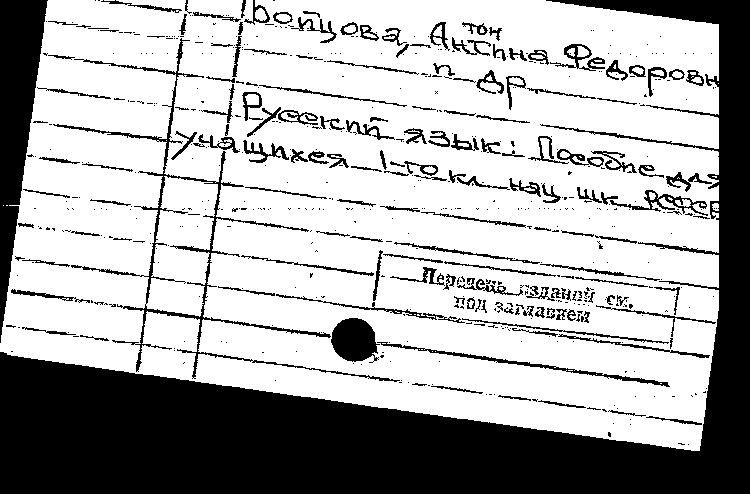 Бойцова, Антонина Федоровн
и др.
Русский язык: Пособие для
учащихся 1-го кл нац шк РСФСР
Перечень изданий см.
под заглавием